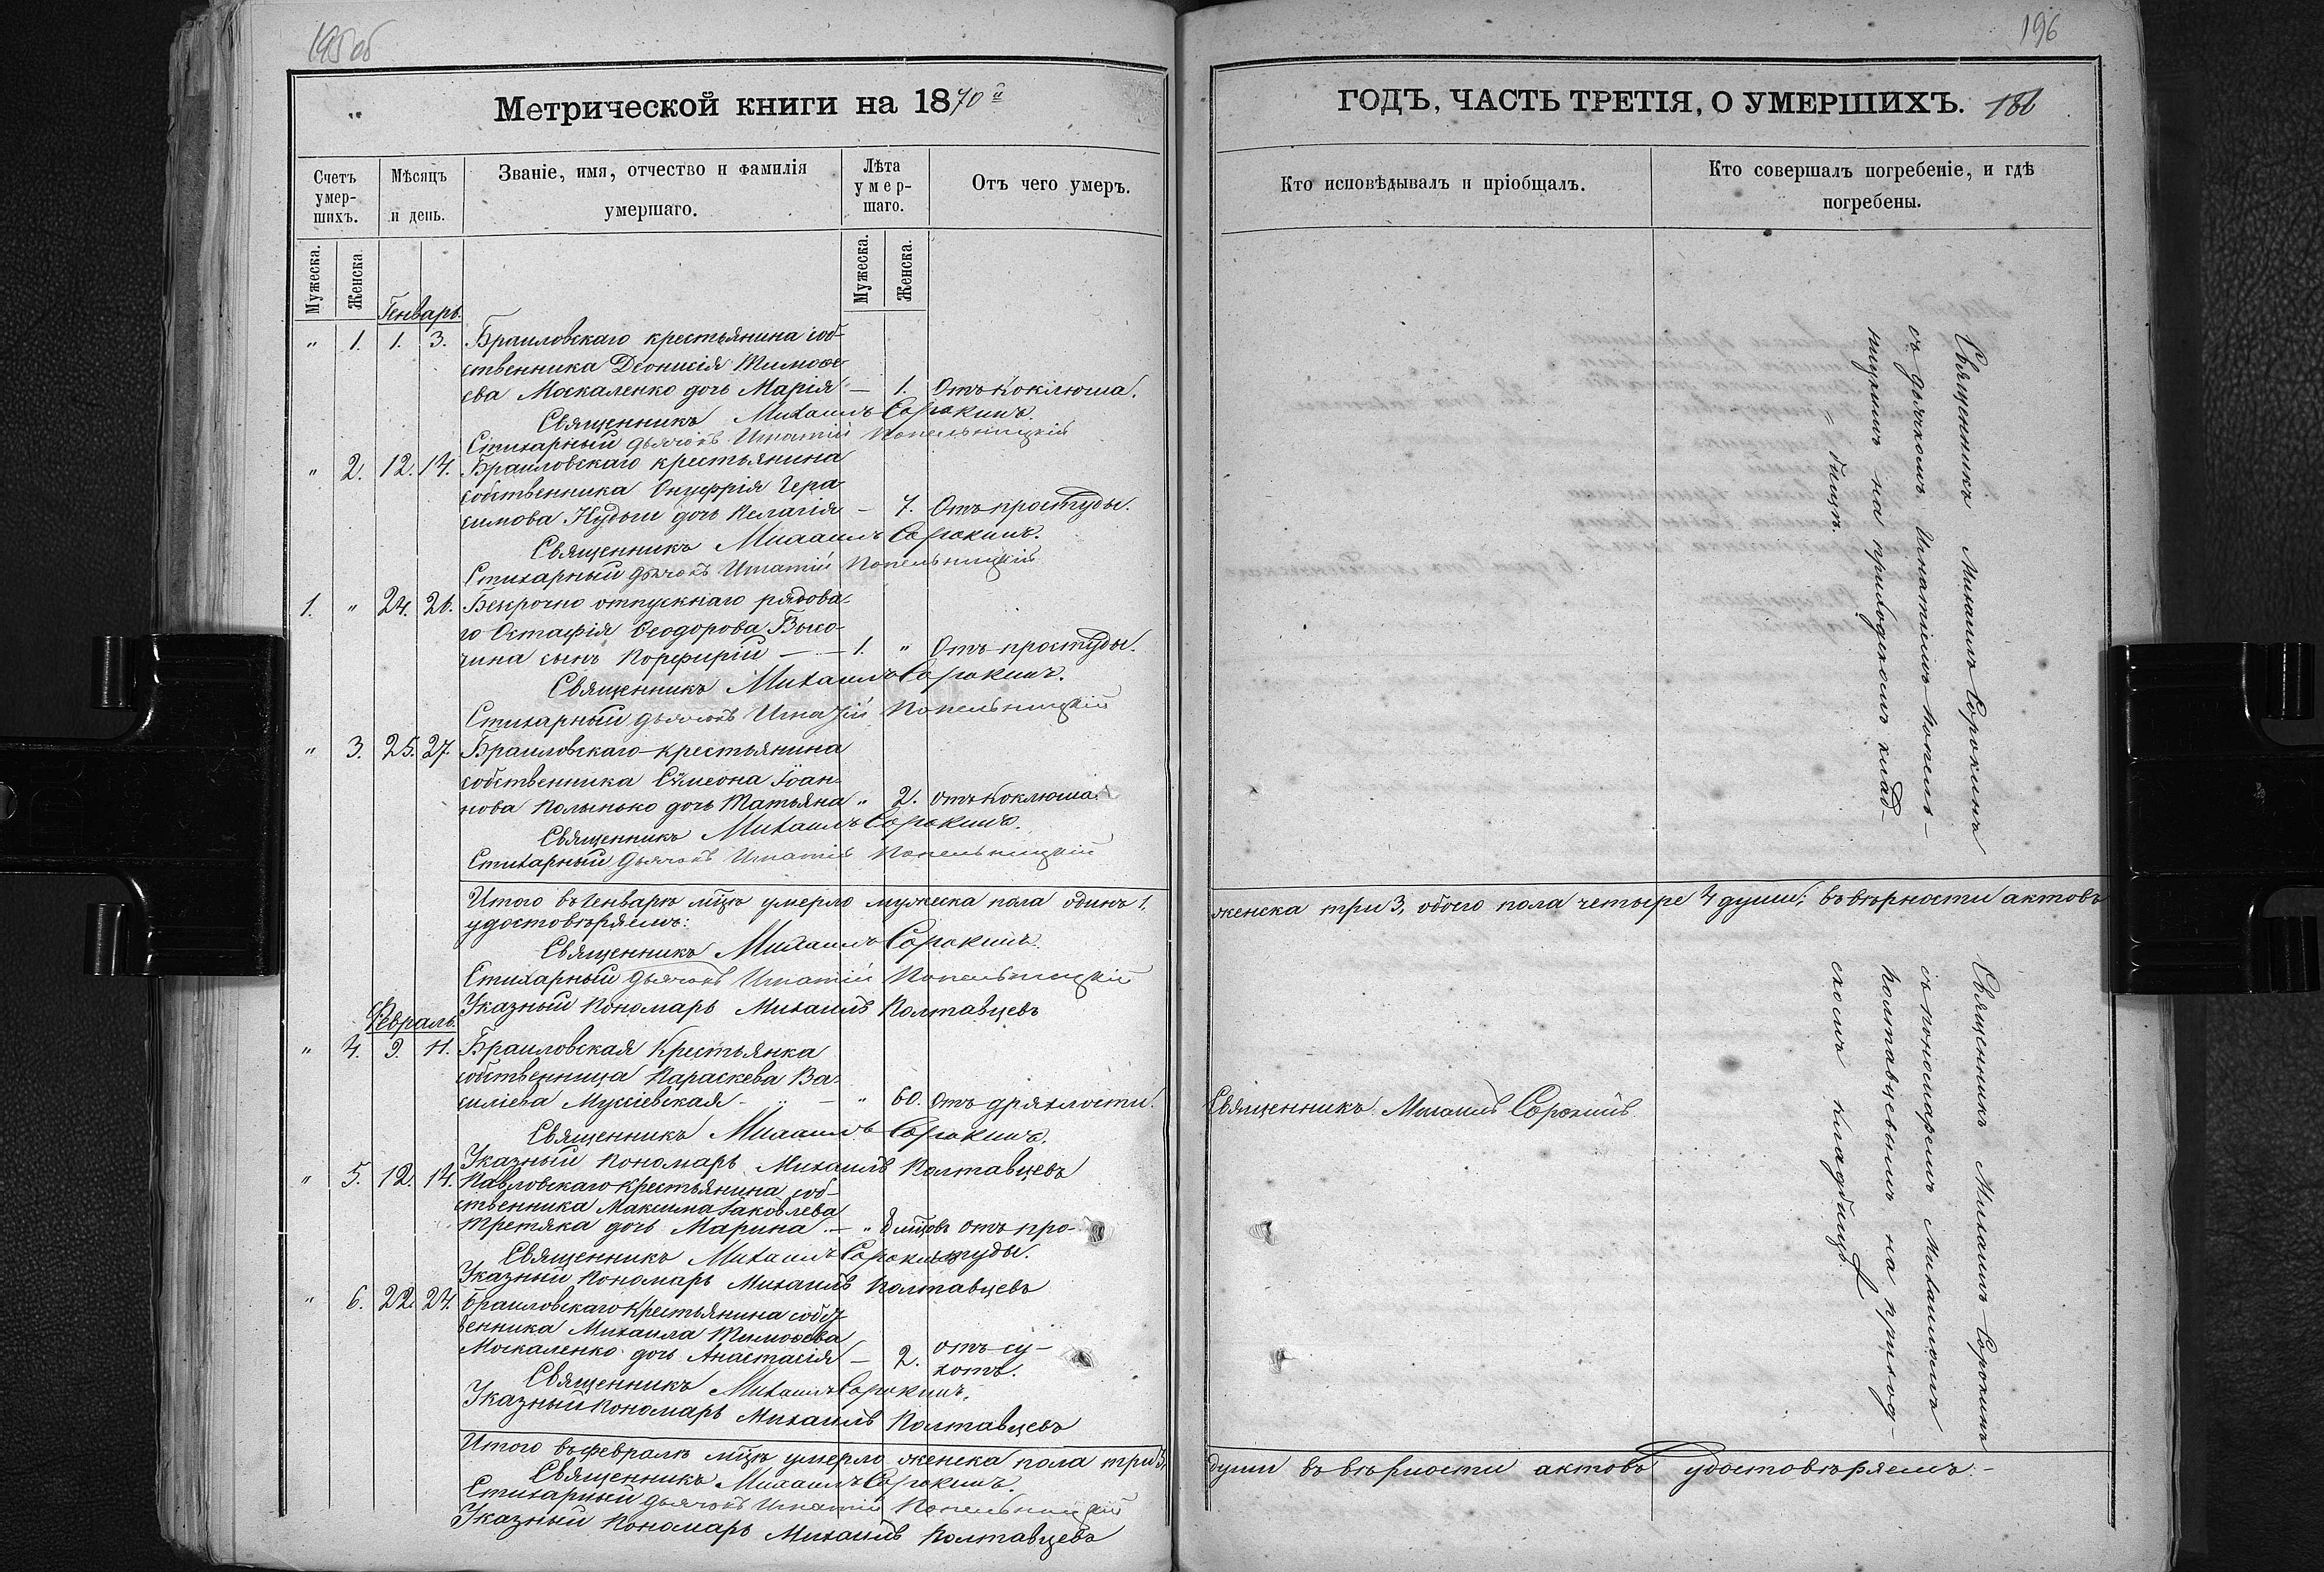 195 об
Метрической книги на 1870й
Счетъ умер-шихъ.
Мѣсяцъ и день.
Званіе, имя, отчество и фамилія
умершаго.
Лѣта умер-шаго.
Отъ чего умеръ.
Мужеска.
Женска.
Мужеска.
Женска.
Генварь.
" 1. 1. 3. Браиловскаго крестьянина соб-
ственника Деонисія Тимоѳе
ева Москаленко дочь Марія — 1. Отъ коклюша.
Священникъ Михаилъ Сорокинъ.
Стихарный дьячокъ Игнатій Попельницкій
" 2. 12. 14. Браиловскаго крестьянина
собственника Онуфрія Гера
симова Кудым дочь Пелагія — 7. Отъ простуды.
Священникъ Михаилъ Сорокинъ.
Стихарный дьячокъ Игнатій Попельницкій
1. " 24. 26. Безсрочно отпускнаго рядова-
го Остафія Ѳеодорова Высо-
чина сынъ Порфирій — 1. " Отъ простуды.
Священникъ Михаилъ Сорокинъ.
Стихарный дьячокъ Игнатій Попельницкій
" 3. 25. 27. Браиловскаго крестьянина
собственника Сѵмеона Іоан-
нова Полынько дочь Татьяна " 2. отъ коклюша.
Священникъ Михаилъ Сорокинъ.
Стихарный дьячокъ Игнатій Попельницкій
Итого въ Генварѣ мцѣ умерло мужеска пола одинъ 1.
удостовѣряемъ:
Священникъ Михаилъ Сорокинъ.
Стихарный дьячокъ Игнатій Попельницкій
Указный Пономарь Михаилъ Полтавцевъ
Февраль.
" 4. 9. 11. Браиловская Крестьянка
собственница Параскева Ва-
силіева Мусіевская - " — " 60. отъ дряхлости.
Священникъ Михаилъ Сорокинъ.
Указный Пономарь Михаилъ Полтавцевъ
" 5. 12. 14. Павловскаго крестьянина соб-
ственника Максима Іаковлева
Третяка дочь Марина. — " 8 мцовъ отъ про-
студы.
Священникъ Михаилъ Сорокинъ
Указный Пономарь Михаилъ Полтавцевъ
" 6. 22. 24. Браиловскаго Крестьянина собст
венника Михаила Тимоѳеева
Москаленко дочь Анастасія — 2. отъ су-
хотъ.
Священникъ Михаилъ Сорокинъ.
Указный Пономарь Михаилъ Полтавцевъ
Итого въ февралѣ мцѣ умерло женска пола три 3.
Священникъ Михаилъ Сорокинъ.
Стихарный дьячокъ Игнатій Попельницкій
Указный Пономарь Михаилъ Полтавцевъ
196
ГОДЪ, ЧАСТЬ ТРЕТІЯ, О УМЕРШИХЪ.
Кто исповѣдывалъ и пріобщалъ.
Кто совершалъ погребеніе, и гдѣ
погребены.
Священникъ Михаилъ Сорокинъ
съ дьячкомъ Игнатіемъ Попель-
ницкимъ на приходскомъ клад-
= бищѣ.
женска три 3, обоего пола четыре 4 души; въ вѣрности актовъ
Священникъ Михаилъ Сорокинъ
Священникъ Михаилъ Сорокинъ
съ пономаремъ Михаиломъ
Полтавцевымъ на приход-
скомъ кладбищѣ
души въ вѣрности актовъ удостовѣряемъ.-